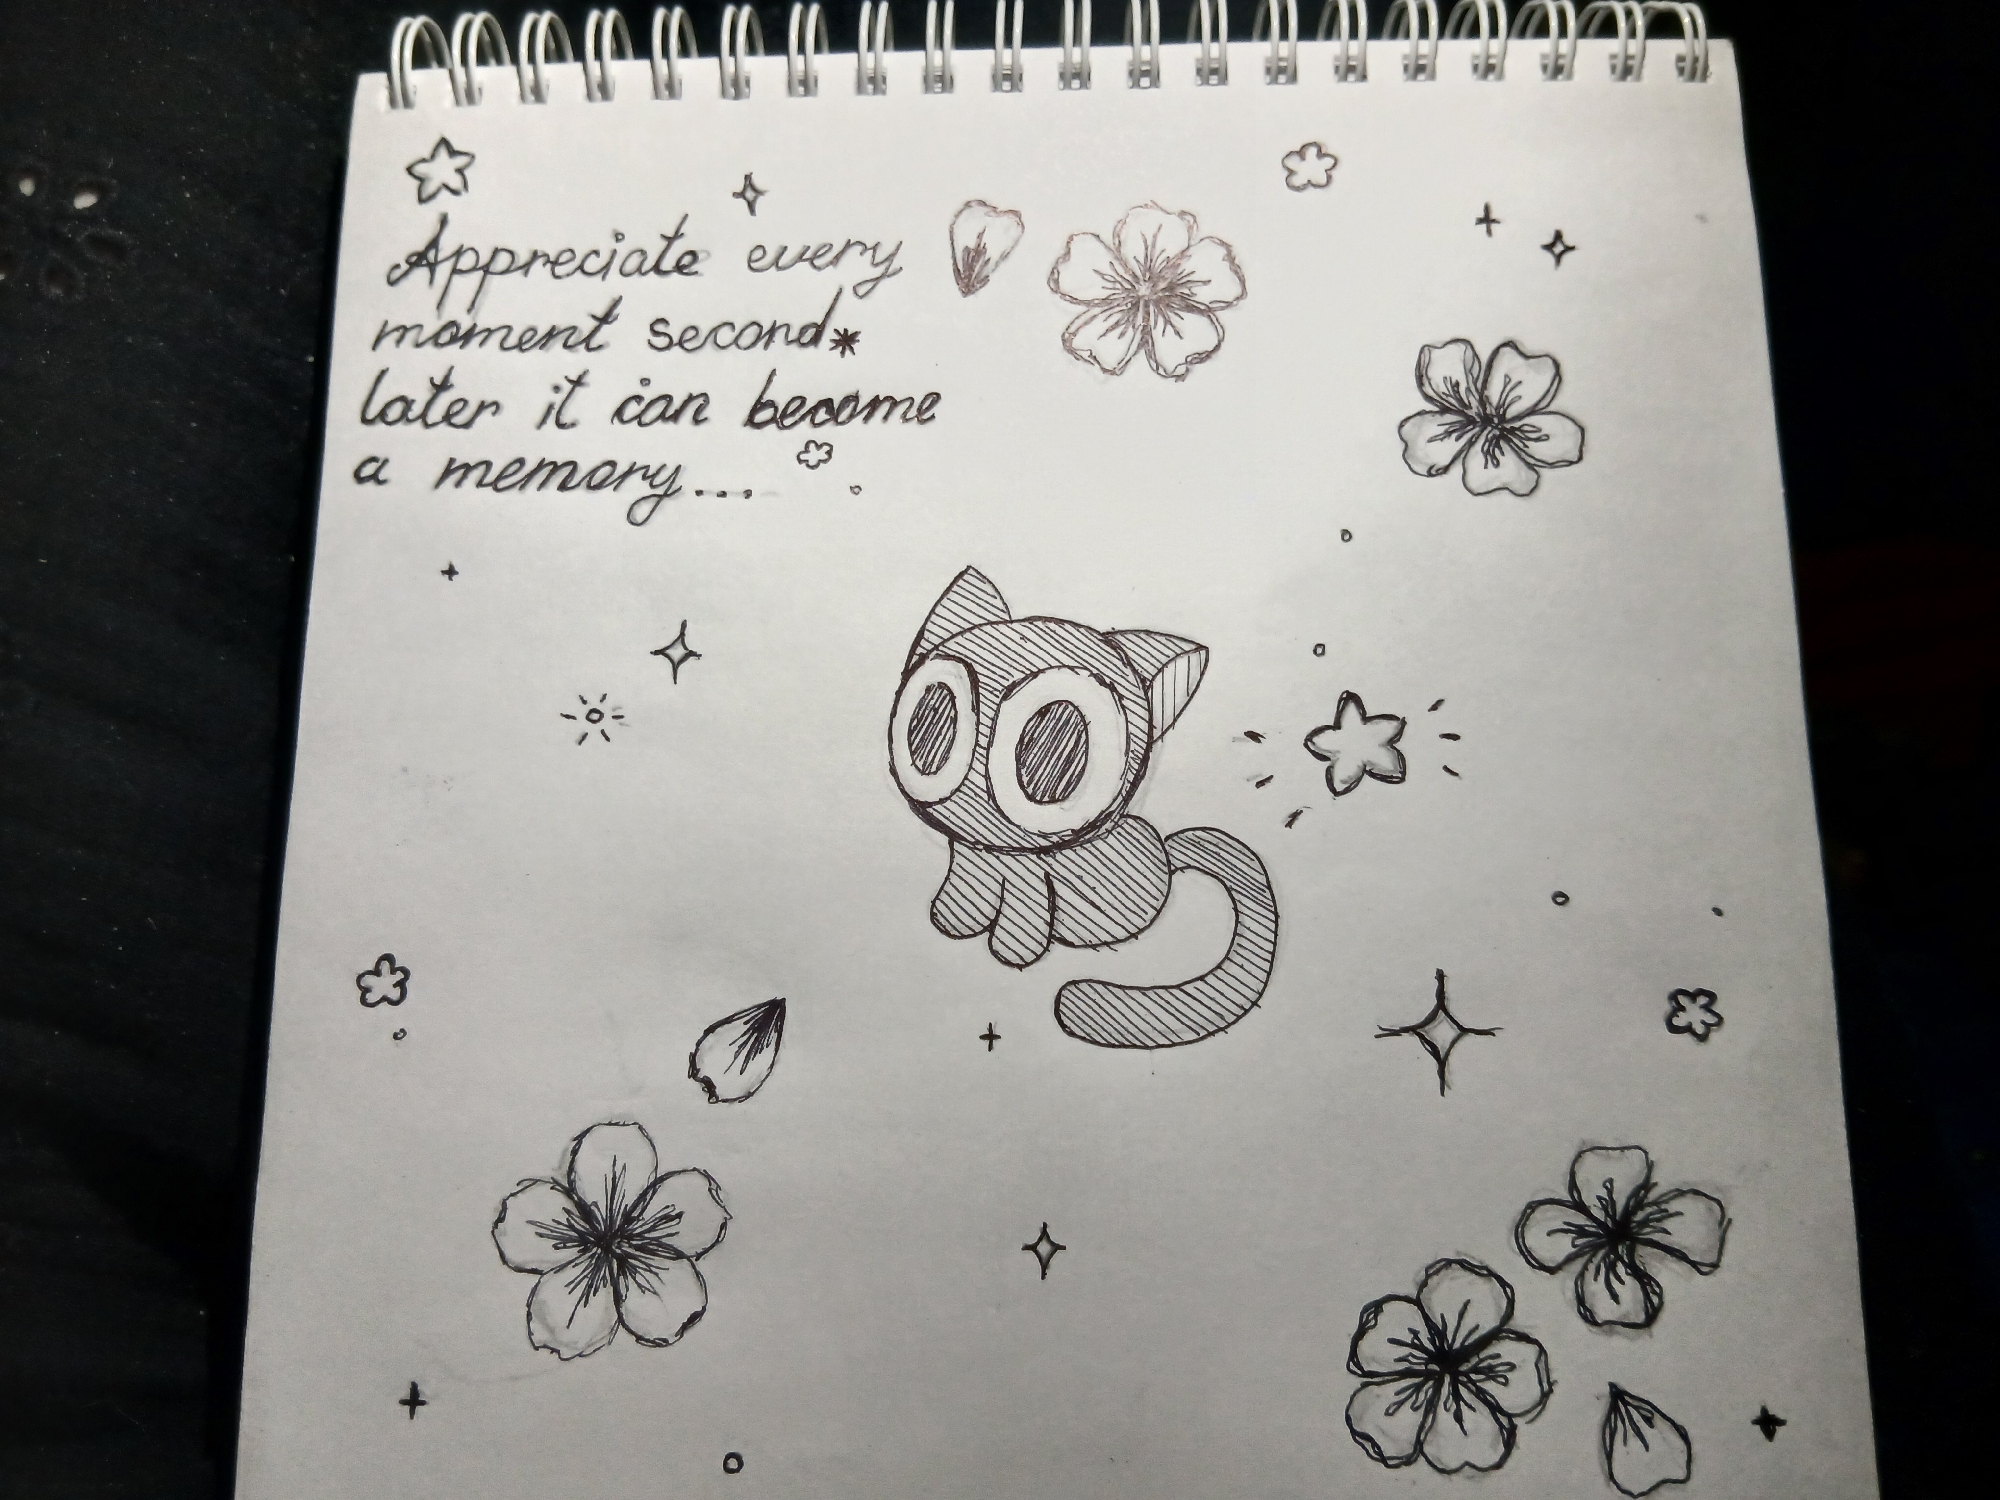 Appreciate every
moment second*
later it can become
a memory...